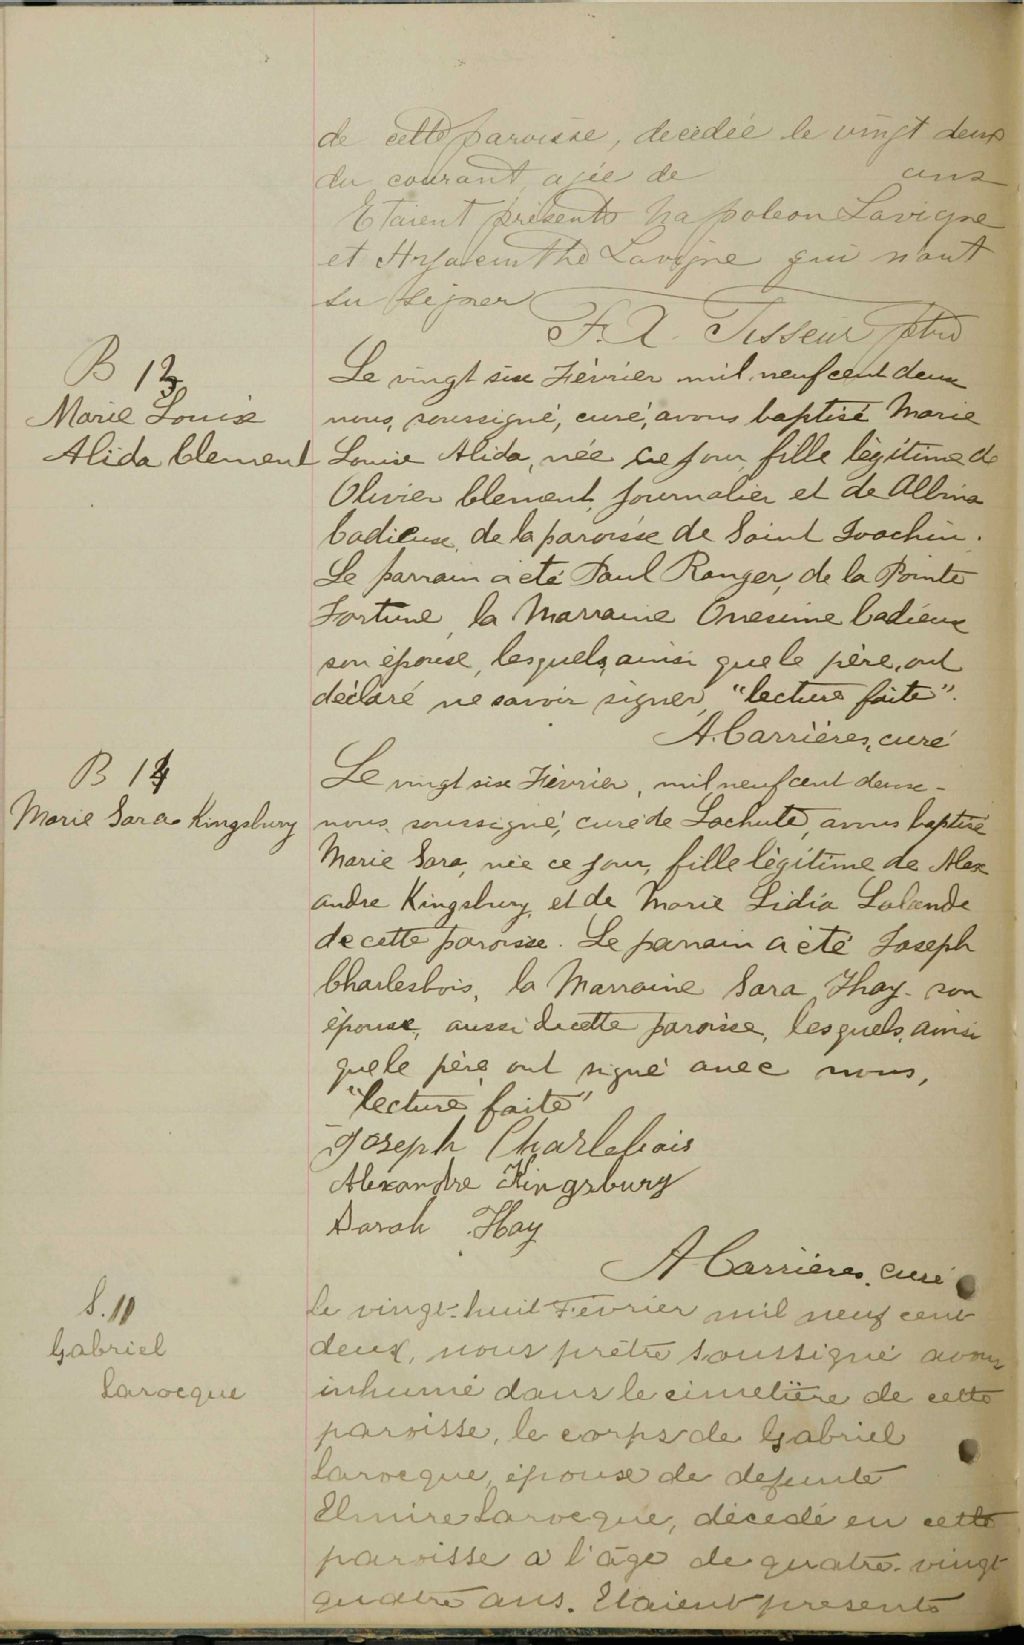 de cette paroisse, decédée le vingt deux
du courant, agée de ans
Etaient présents Napoleon Lavigne
et Hyacinthe Lavigne qui n'ont
su signer
F. X. Tisseur ptre
B 13
Marie Louise
Alida Clement
Le vingt six Février mil neuf cent deux
nous, soussigné, curé, avons baptisé Marie
Louise Alida, née ce jour, fille légitime de
Olivier Clement, journalier et de Albina
Cadieux, de la paroisse de Saint Joachin.
Le parrain a été Paul Ranger, de la Pointe
Fortune, la Marraine Onesime Cadieux
son épouse, lesquels, ainsi que le père, ont
déclaré ne savoir signer, "lecture faite".
A. Carrières, curé
B 14
Marie Sara Kingsbury
Le vingt six Février, mil neuf cent deux -
nous, soussigné, curé de Lachute, avons baptisé
Marie Sara, née ce jour, fille légitime de Alex
andre Kingsbury, et de Marie Lidia Lalande
de cette paroisse. Le parrain a été Joseph
Charlesbois, la Marraine Sara Hay son
épouse, aussi de cette paroisse, lesquels, ainsi
que le père, ont signé avec nous,
"lecture faite"
Joseph Charlebois
Alexandre Kingsbury
Sarah Hay
A Carrières, curé
S. 11
Gabriel
Larocque
Le vingt-huit Février mil neuf cent
deux, nous prêtre soussigné avons
inhumé dans le cimetière de cette
paroisse, le corps de Gabriel
Larocque, épouse de defunte
Elmire Larocque, décédé en cette
paroisse a l'âge de quatre-vingt
quatre ans. Etaient presents